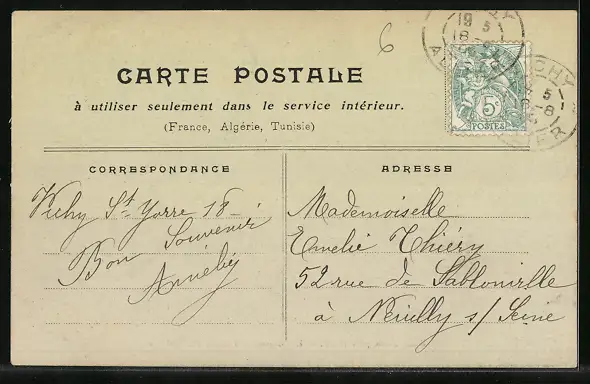 6
CARTE POSTALE
à utiliser seulement dans le service intérieur.
(France, Algérie, Tunisie)
5c
POSTES
CORRESPONDANCE
Vichy St Yorre 18-
Bon Souvenir
ADRESSE
Mademoiselle
Emelie Thiéry
52 rue de Sablonville
à Neuilly s/ Seine